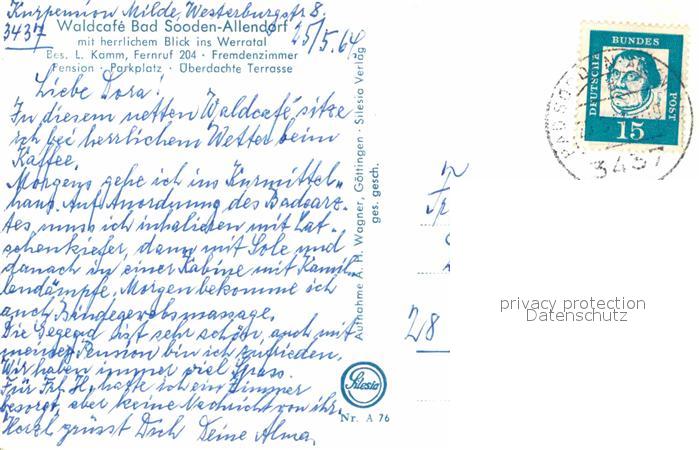 Kurpension Milde, Westerburgstr 8.
3437
Waldcafé Bad Sooden-Allendorf
25/5.64
mit herrlichem Blick ins Werratal
Bes. L. Kamm, Fernruf 204 · Fremdenzimmer
Pension · Parkplatz · Überdachte Terrasse
Liebe Dora!
In diesem netten Waldcafé sitze
ich bei herrlichem Wetter beim
Kaffee.
Morgens gehe ich ins Kurmittel-
haus. Auf Anordnung des Badearz-
tes muss ich inhalieren mit Lat-
schenkiefer, dann mit Sole und
danach in einer Kabine mit Kamil-
lendämpfe. Morgen bekomme ich
auch Bindegewebsmassage.
Die Gegend ist sehr schön, auch mit
meiner Pension bin ich zufrieden.
Wir haben immer viel Spass.
Für Frl. H. hatte ich ein Zimmer
besorgt, aber keine Nachricht von ihr.
Herzl. grüsst Dich Deine Alma.
Aufnahme A. H. Wagner, Göttingen · Silesia Verlag
ges. gesch.
Silesia
Nr. A 76
DEUTSCHE
BUNDES
POST
15
3437
28
privacy protection
Datenschutz